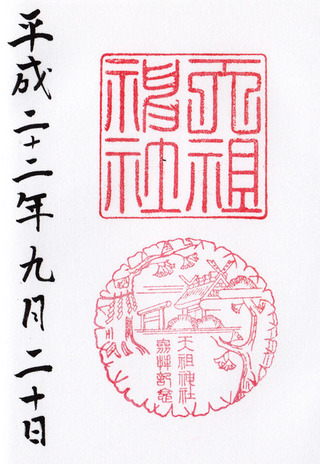 天祖
神社
天祖神社
参拝記念
平成二十二年九月二十日